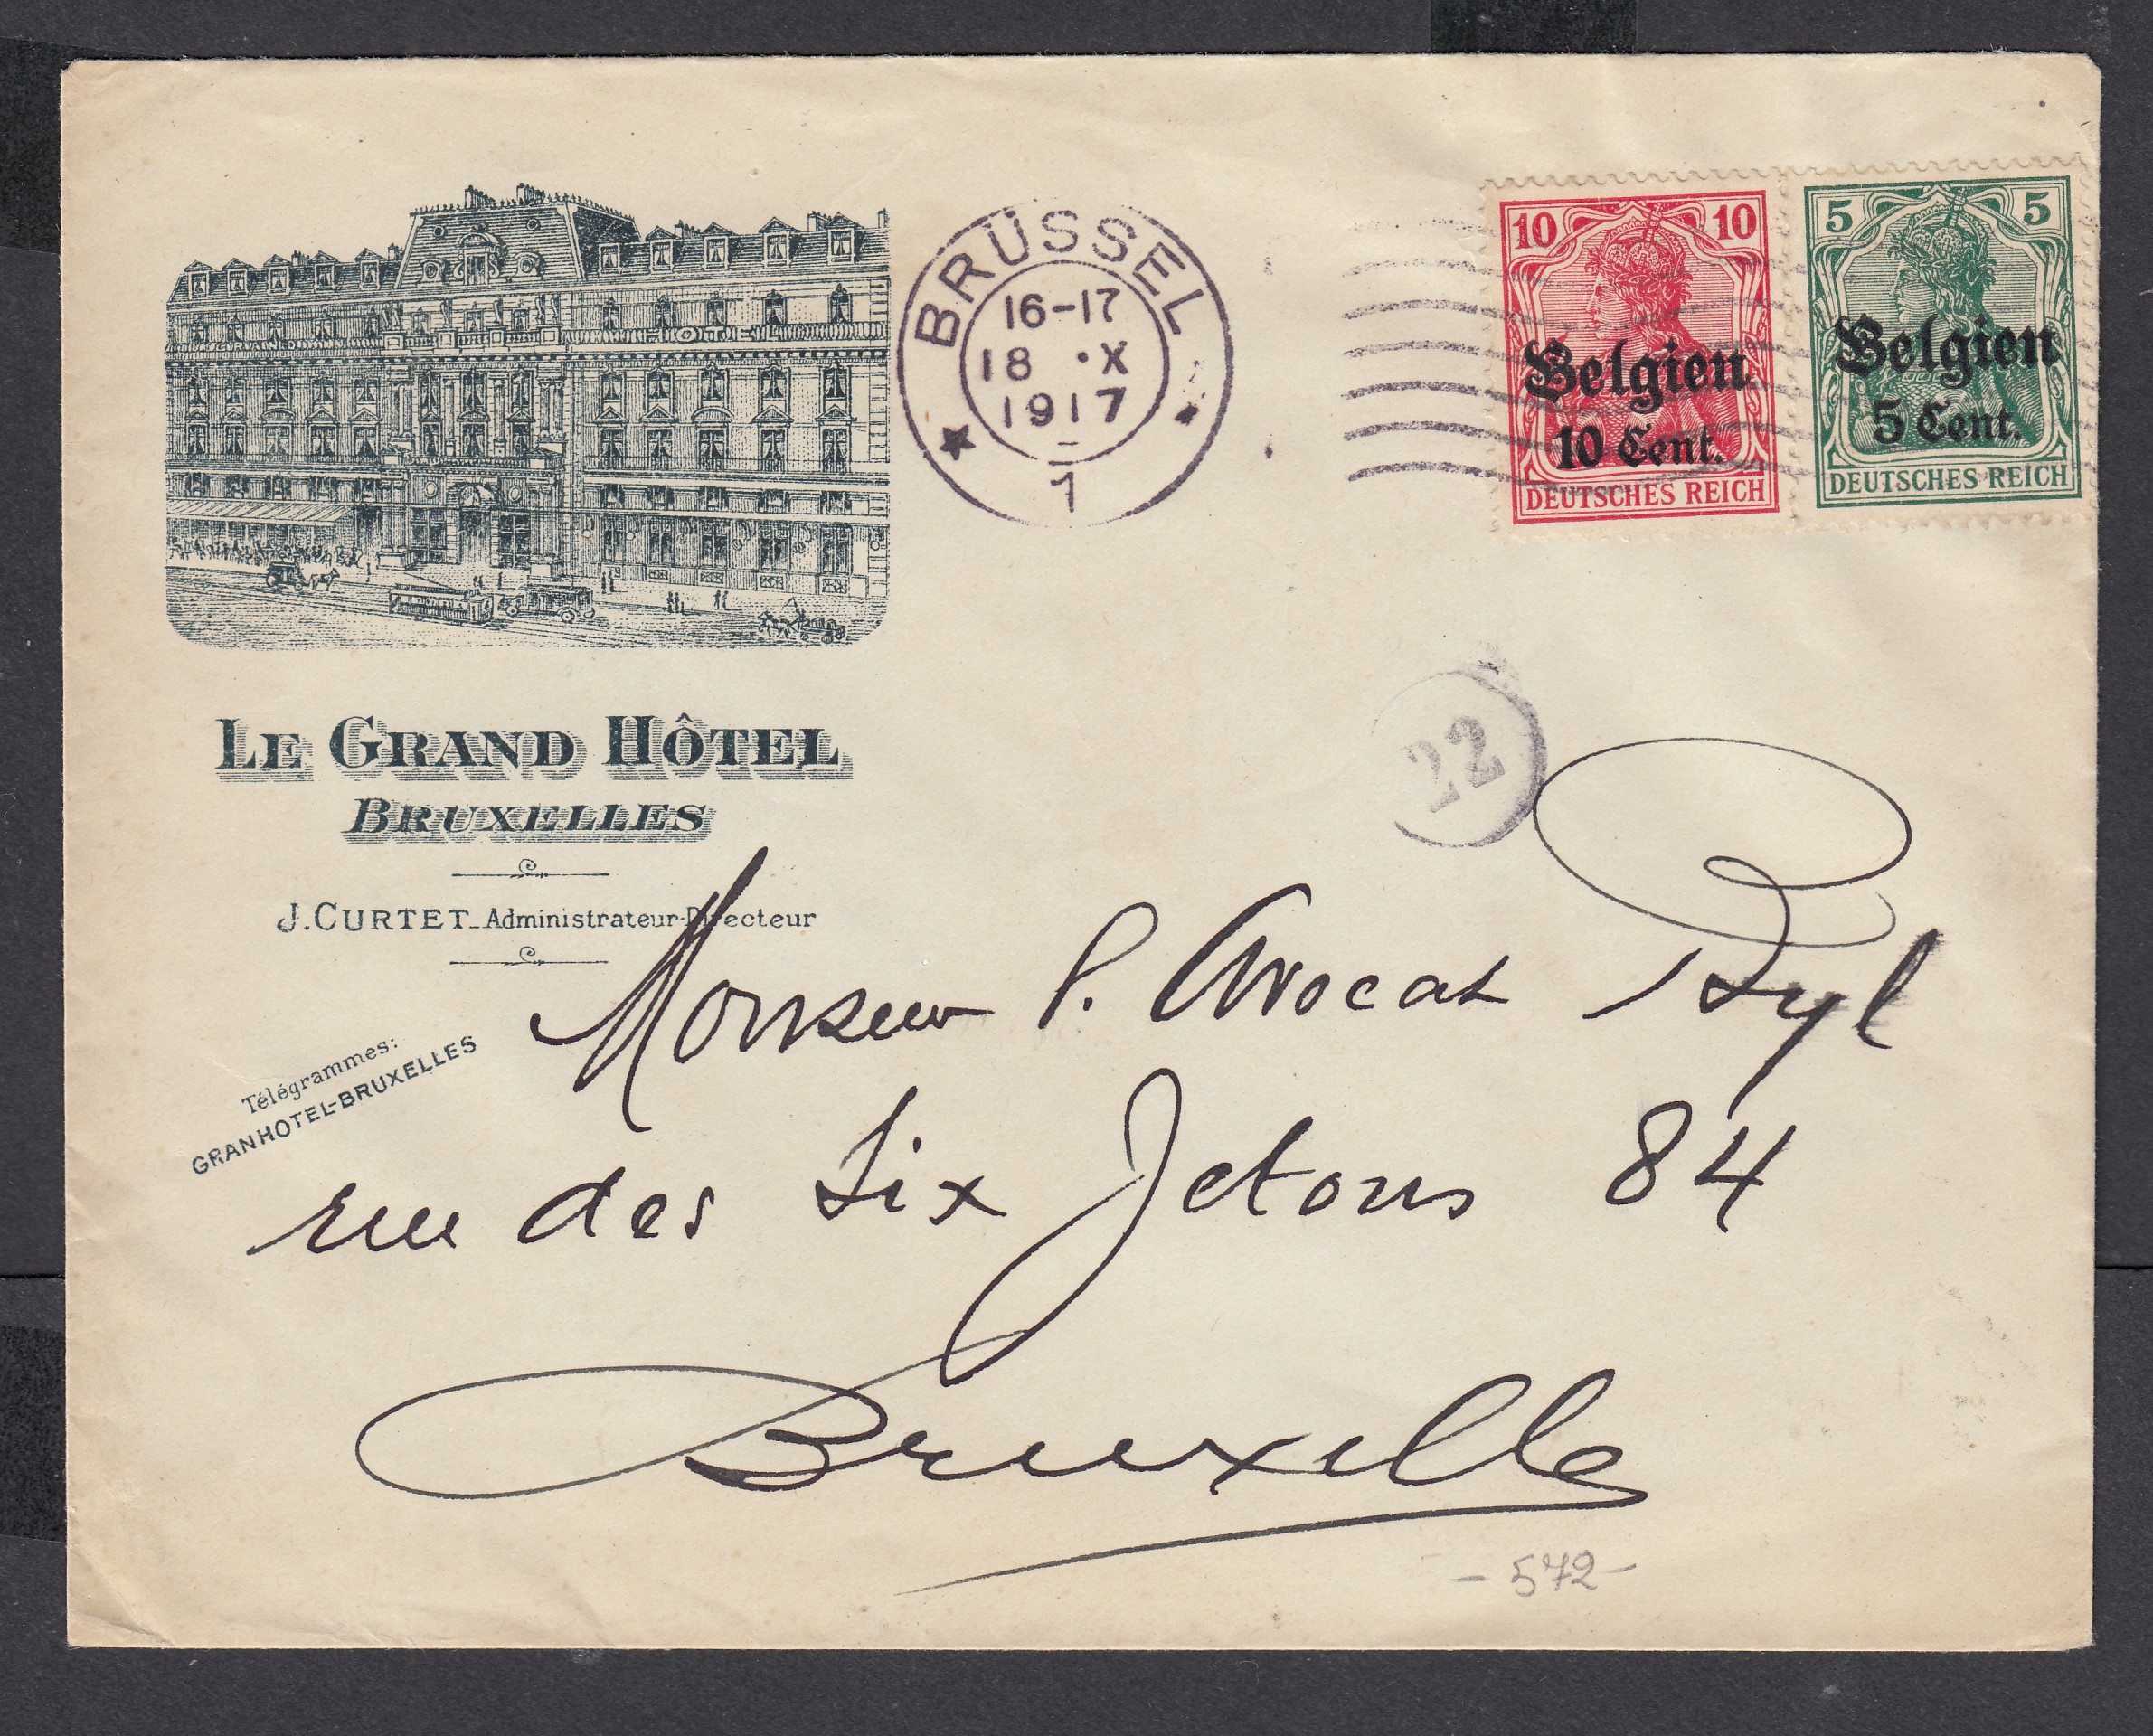 HOTEL
LE GRAND HÔTEL
BRUXELLES
J. CURTET_Administrateur-Directeur
Télégrammes:
GRANHOTEL-BRUXELLES
BRÜSSEL
16-17
18 ·X
1917
1
10 10
Belgien
10 Cent.
DEUTSCHES REICH
5 5
Belgien
5 Cent.
DEUTSCHES REICH
22
Monsieur l. Avocat Byl
rue des Six Jetons 84
Bruxelles
- 572 -